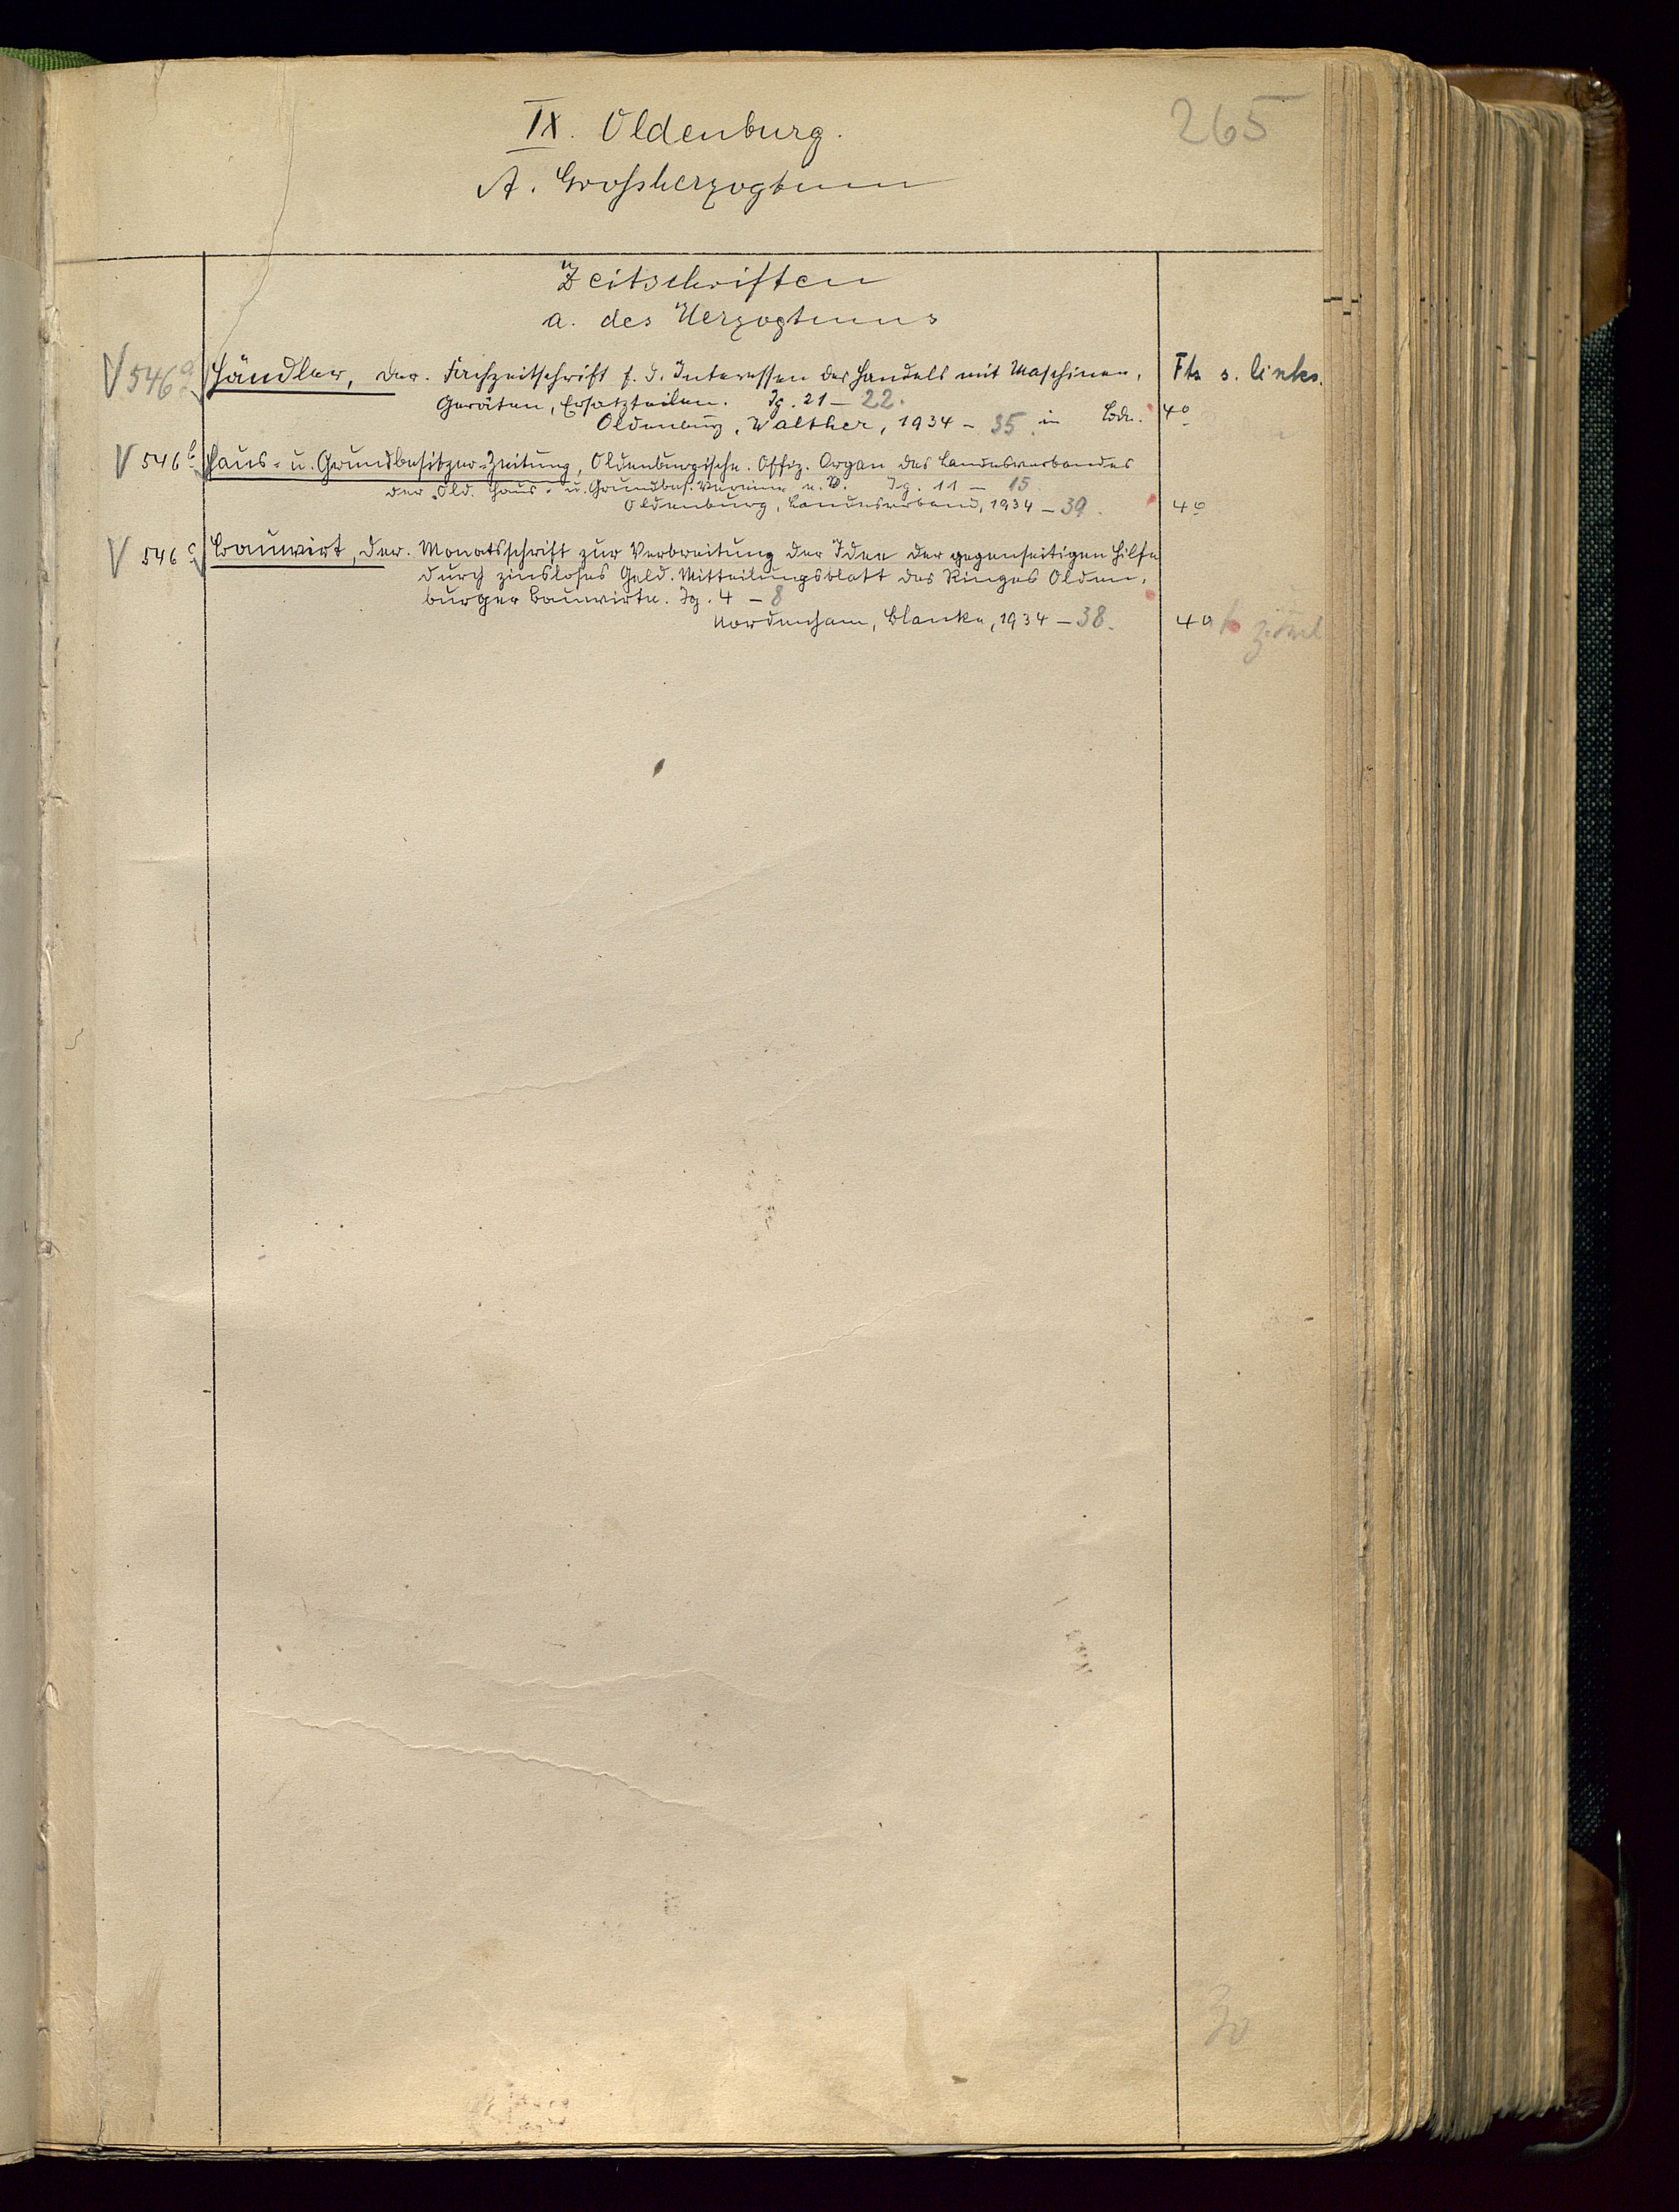 265
IX. Oldenburg.
A. Grossherzogtum
Zeitschriften
a. des Herzogtums
V 546 a Händler, Der. Fachzeitschrift f. d. Interessen des Handels mit Maschinen, Ftz s. links.
Geräten, Ersatzteilen. Jg. 21 – 22.
Oldenburg, Walther, 1934 – 35. in Bdn. 4°
V 546 b Haus- u. Grundbesitzer-Zeitung, Oldenburgische. Offiz. Organ des Landesverbandes
der Old. Haus- u. Grundbes. Vereine e. V. Jg. 11 – 15
Oldenburg, Landesverband, 1934 – 39. 4°
V 546 c Bauwirt, Der. Monatsschrift zur Verbreitung der Idee der gegenseitigen Hilfe
durch zinsloses Geld. Mitteilungsblatt des Ringes Olden-
burger Bauwirte. Jg. 4 – 8
Nordenham, Blanke, 1934 – 38. 4°